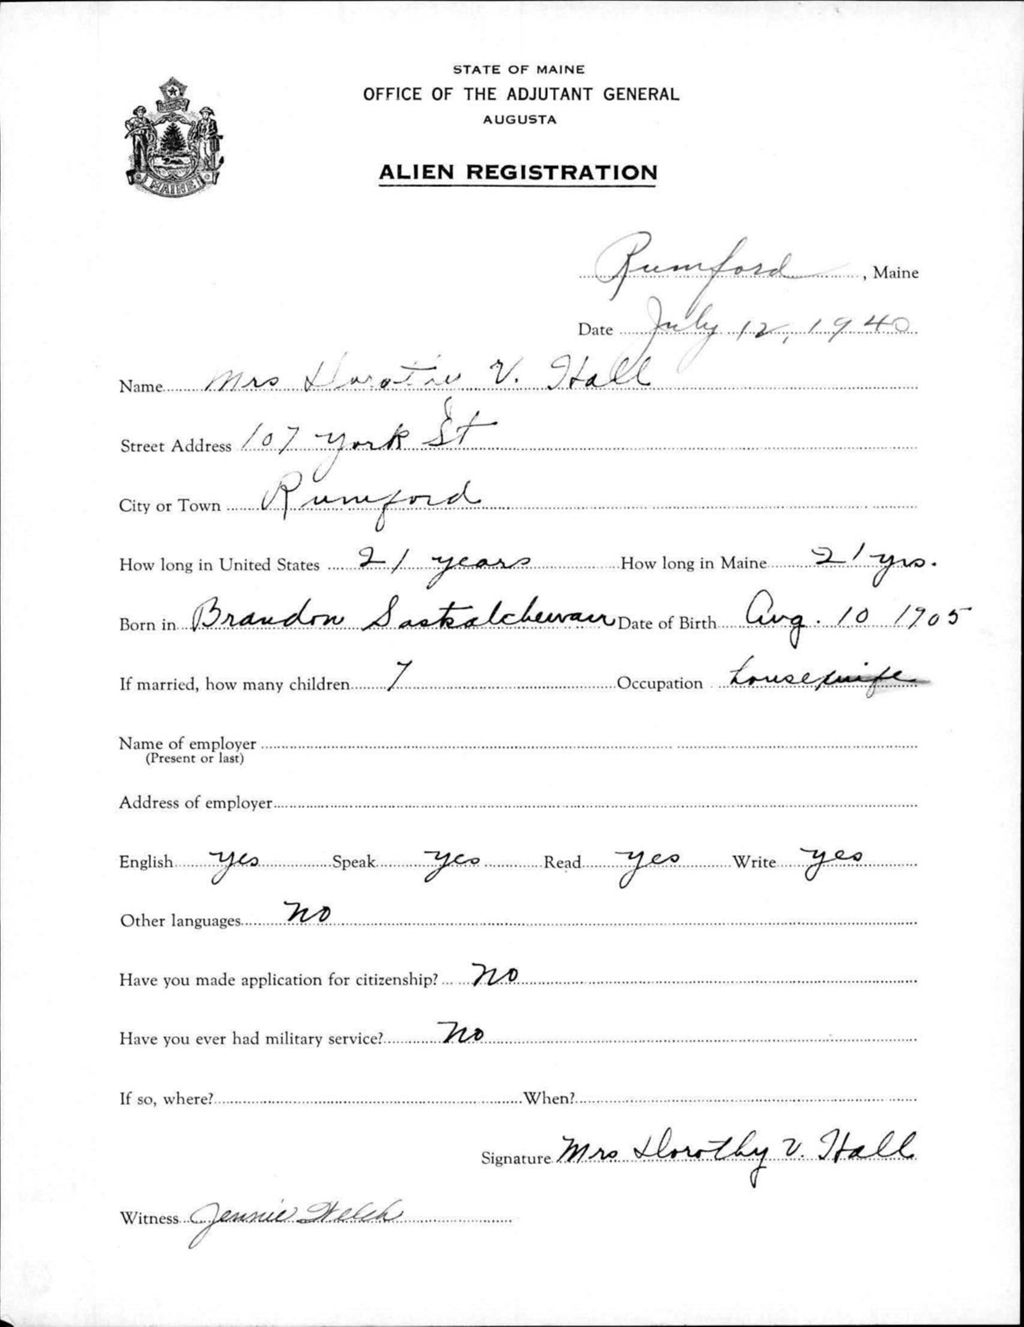 STATE OF MAINE
OFFICE OF THE ADJUTANT GENERAL
AUGUSTA
ALIEN REGISTRATION
MAINE
Rumford, Maine
Date July 12, 1940
Name Mrs V. Hall
Street Address 107 York St
City or Town Rumford
How long in United States 21 years How long in Maine 21 yrs.
Born in Brandon Saskatchewan Date of Birth Aug. 10 1905
If married, how many children 7 Occupation housewife
Name of employer
(Present or last)
Address of employer
English yes Speak yes Read yes Write yes
Other languages No
Have you made application for citizenship? No
Have you ever had military service? No
If so, where? When?
Signature Mrs Dorothy V. Hall
Witness Jennie Welch